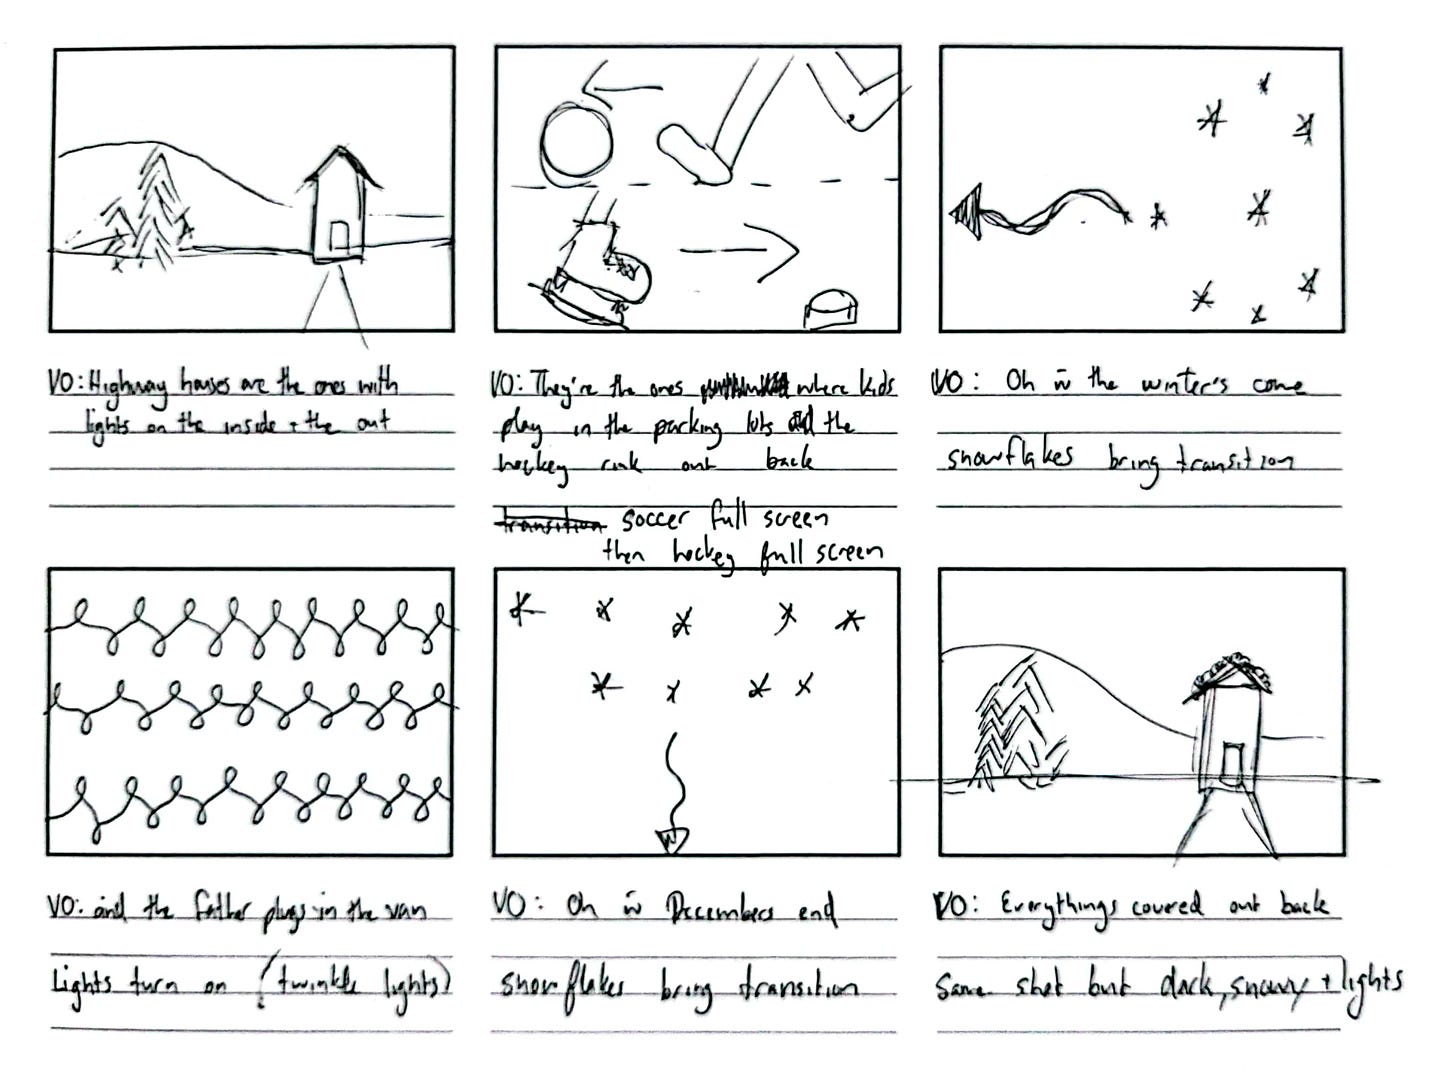 VO: Highway houses are the ones with
lights on the inside + the out
VO: They're the ones where kids
play in the parking lots and the
hockey rink out back
transition soccer full screen
then hockey full screen
VO: Oh in the winter's come
snowflakes bring transition
VO: and the father plugs in the van
Lights turn on (twinkle lights)
VO: Oh in Decembers end
snowflakes bring transition
VO: Everythings covered out back
Same shot but dark, snowy + lights